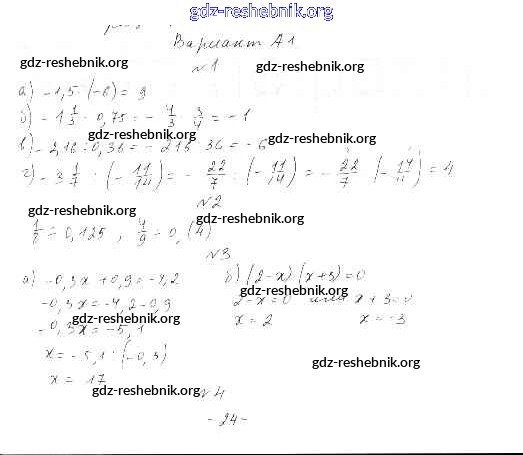 gdz-reshebnik.org
Вариант А1
gdz-reshebnik.org
№1
gdz-reshebnik.org
а) -1,5 · (-6) = 9
б) -1 1/3 · 0,75 = - 4/3 · 3/4 = -1
gdz-reshebnik.org
gdz-reshebnik.org
в) -2,16 : 0,36 = - 216 : 36 = -6
г) -3 1/7 : (- 11/14) = - 22/7 : (- 11/14) = - 22/7 · (- 14/11) = 4
№2
gdz-reshebnik.org
gdz-reshebnik.org
1/8 = 0,125 , 4/9 = 0,(4)
№3
а) -0,3x + 0,9 = -4,2
б) (2-x)(x+3)=0
gdz-reshebnik.org
-0,3x = -4,2 - 0,9
2-x=0 или x+3=0
gdz-reshebnik.org
-0,3x = -5,1
x = 2 x = -3
x = -5,1 : (-0,3)
gdz-reshebnik.org
x = 17
gdz-reshebnik.org
№4
- 24 -